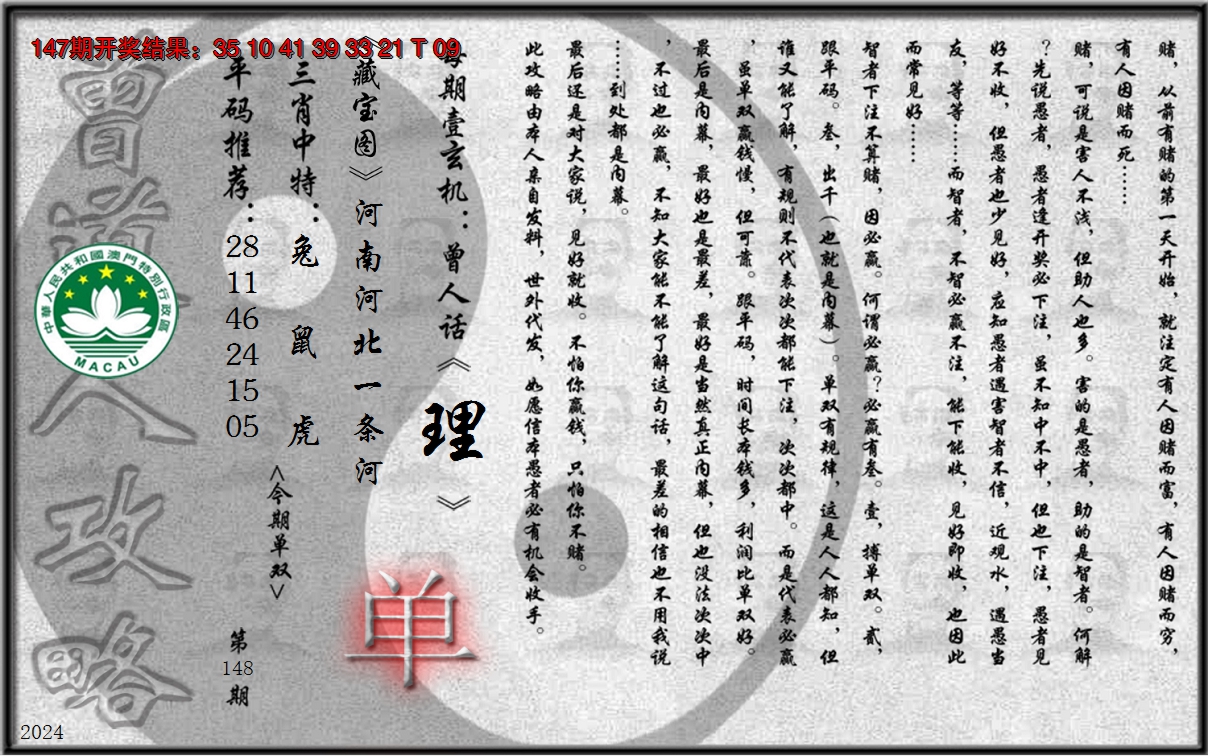 147期开奖结果：35 10 41 39 33 21 T 09
赌，从前有赌的第一天开始，就注定有人因赌而富，有人因赌而穷，
有人因赌而死……
赌，可说是害人不浅，但助人也多。害的是愚者，助的是智者。何解
？先说愚者，愚者逢开奖必下注，虽不知中不中，但也下注，愚者见
好不收，但愚者也少见好，应知愚者遇害智者不信，近观水，遇愚当
友，等等……而智者，不智必赢不注，能下能收，见好即收，也因此
而常见好……
智者下注不算赌，因必赢。何谓必赢？必赢有叁。壹，搏单双。贰，
跟平码。叁，出千（也就是内幕）。单双有规律，这是人人都知，但
谁又能了解，有规则不代表次次都能下注，次次都中。而是代表必赢
，虽单双赢钱慢，但可靠。跟平码，时间长本钱多，利润比单双好。
最后是内幕，最好也是最差，最好是当然真正内幕，但也没法次次中
，不过也必赢，不知大家能不能了解这句话，最差的相信也不用我说
……到处都是内幕。
最后还是对大家说，见好就收。不怕你赢钱，只怕你不赌。
此攻略由本人亲自发料，世外代发，如愿信本愚者必有机会收手。
每期壹玄机：曾人话《理》
《藏宝图》河南河北一条河
单
三肖中特：兔 鼠 虎
<今期单双>
平码推荐：
28
11
46
24
15
05
第
148
期
曾道人攻略
中華人民共和國澳門特別行政區
MACAU
2024